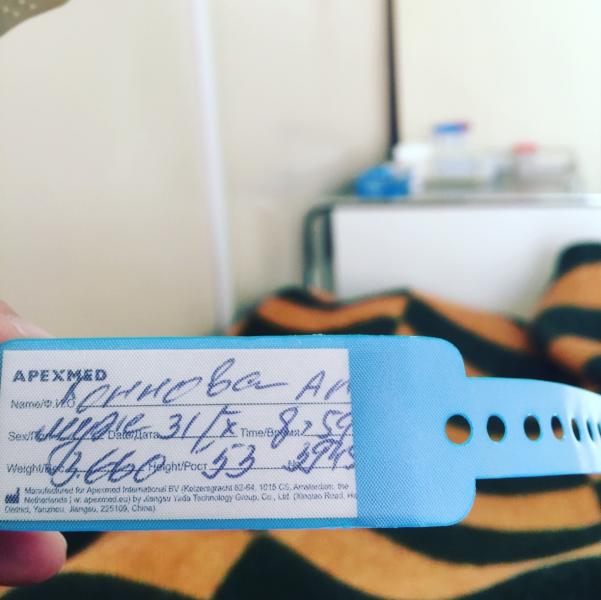 APEXMED
Name/Ф.И.О Коннова Ан
Sex/ муж Date/Дата 31/X Time/Время 8,59
Weight/Вес 3660 Height/Рост 53 №
Manufactured for Apexmed International BV (Keizersgracht 62-64, 1015 CS, Amsterdam, the
Netherlands | w: apexmed.eu) by Jiangsu Yada Technology Group, Co., Ltd. (Xinqiao Road,
District, Yanzhou, Jiangsu, 225109, China)